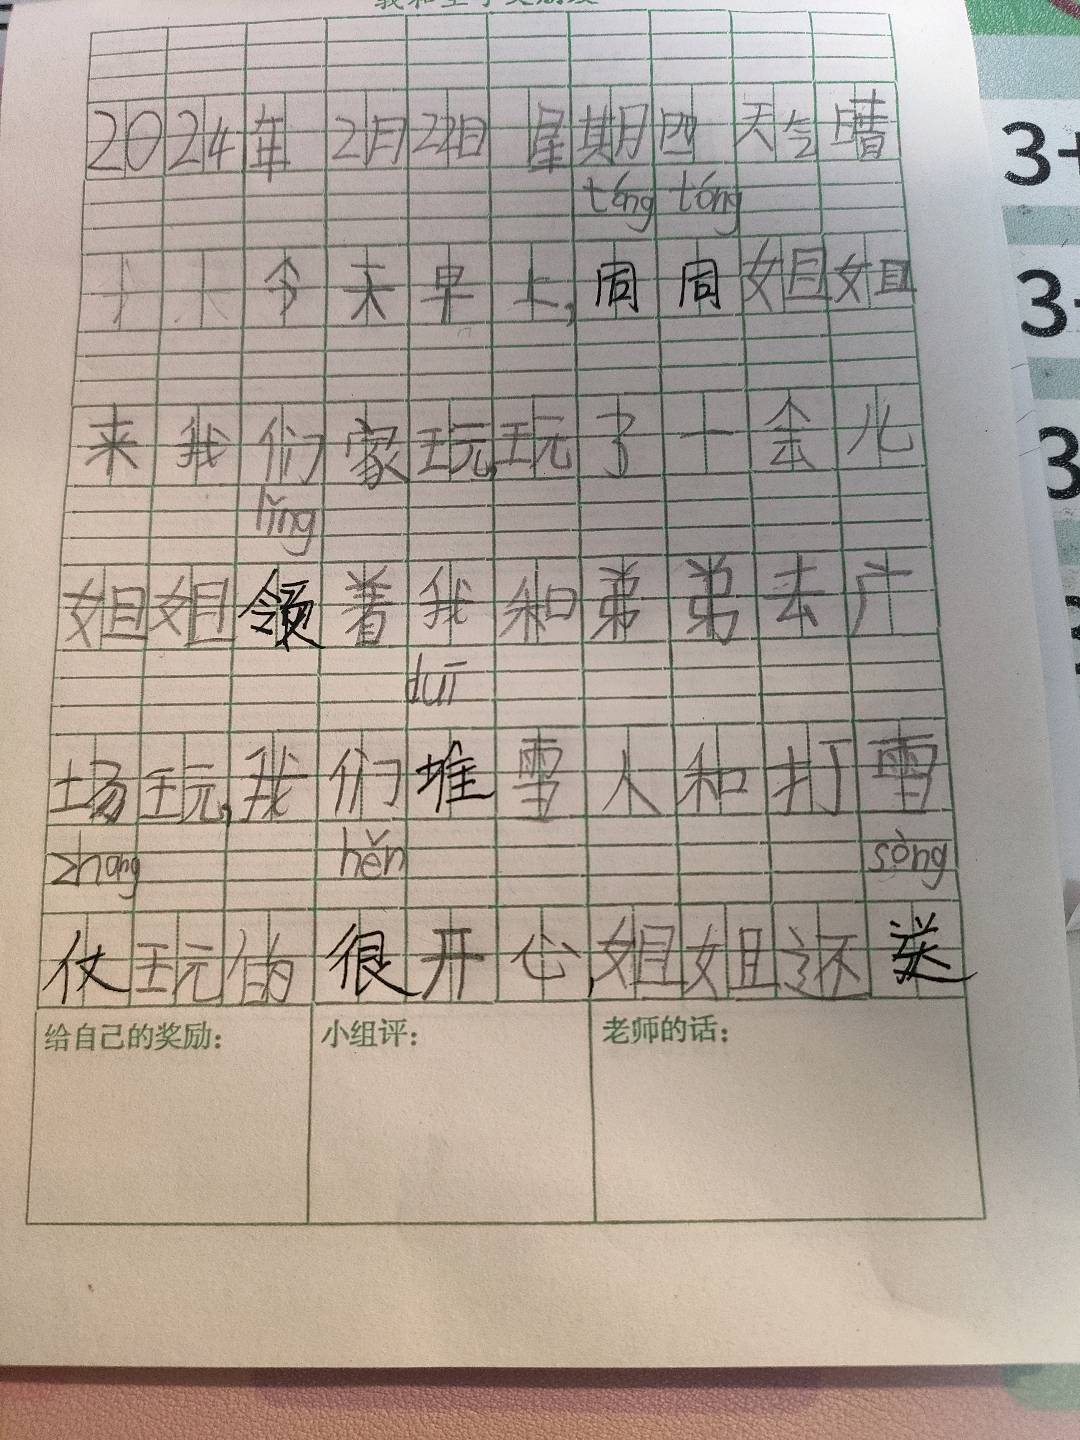 2024年 2月22日 星期四 天气晴
tóng tóng
今天早上,同同姐姐
来我们家玩,玩了一会儿
lǐng
姐姐领着我和弟弟去广
duī
场玩,我们堆雪人和打雪
zhang hěn sòng
仗玩的很开心,姐姐还送
给自己的奖励: 小组评: 老师的话:
3+
3
3